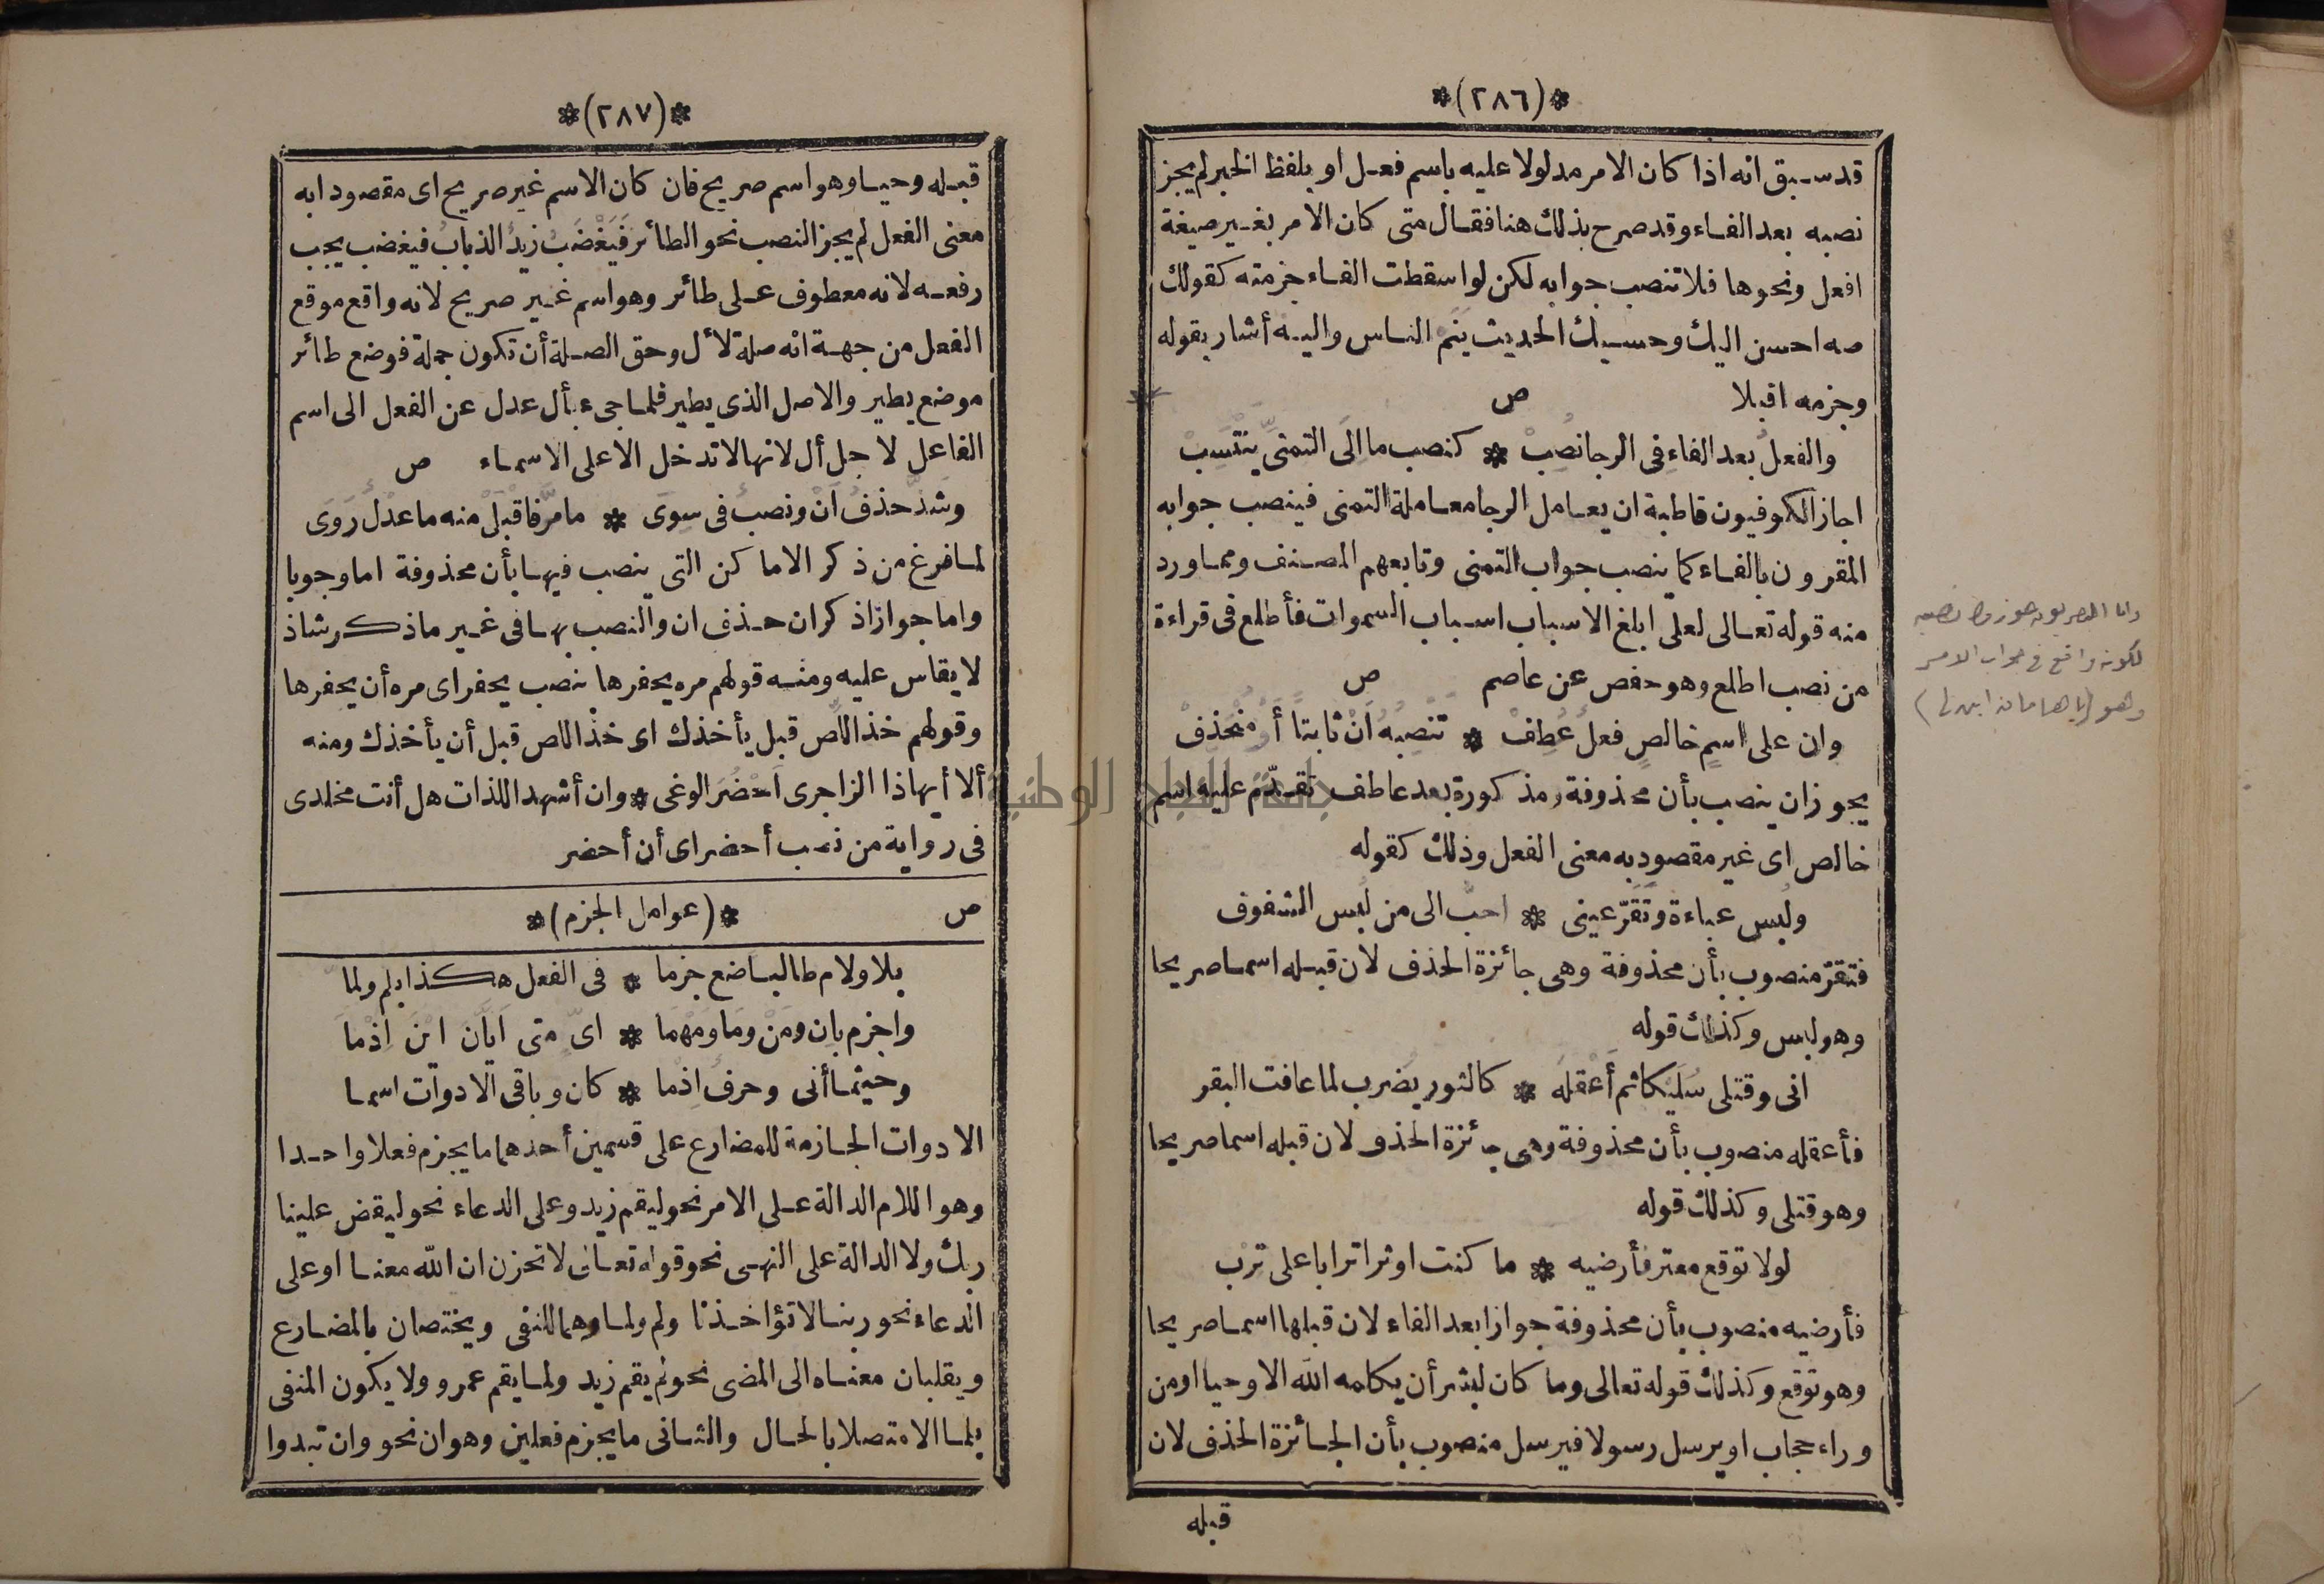 *(٢٨٦)*
قد سبق انه اذا كان الامر مدلولا عليه باسم فعل او بلفظ الخبر لم يجز
نصبه بعد الفاء وقد صرح بذلك هنا فقال متى كان الامر بغير صيغة
افعل ونحوها فلا تنصب جوابه لكن لو اسقطت الفاء جزمته كقولك
صه احسن اليك وحسبك الحديث ينم الناس واليه أشار بقوله
وجزمه اقبلا ص
والفعل بعد الفاء فى الرجا نُصِبْ * كنصب ما الَى التمنىّ ينتَسِبْ
اجاز الكوفيون قاطبة ان يعامل الرجا معاملة التمنى فينصب جوابه
المقرون بالفاء كما ينصب جواب التمنى وتابعهم المصنف ومما ورد
منه قوله تعالى لعلى ابلغ الاسباب اسباب السموات فأطلع فى قراءة
من نصب اطلع وهو حفص عن عاصم ص
وان على اسمٍ خالصٍ فعلٌ عُطِفْ * تَنْصِبُهُ اَنْ ثابتًا أَوْ مُنْحَذِفْ
يجوز ان ينصب بأن محذوفة ومذكورة بعد عاطف تقدّم عليه اسم
خالص اى غير مقصود به معنى الفعل وذلك كقوله
ولُبس عباءة وتَقَرّ عينى * احبّ الى من لُبس الشفوف
فتقرّ منصوب بأن محذوفة وهى جائزة الحذف لان قبله اسما صريحا
وهو لبس وكذلك قوله
انى وقتلى سُلَيْكا ثم أَعْقِلَه * كالثور يضرب لما عافت البقر
فأعقله منصوب بأن محذوفة وهى جائزة الحذف لان قبله اسما صريحا
وهو قتلى وكذلك قوله
لولا توقع معتر فأرضيه * ما كنت اوثر اترابا على تِرْب
فأرضيه منصوب بأن محذوفة جوازا بعد الفاء لان قبلها اسما صريحا
وهو توقع وكذلك قوله تعالى وما كان لبشر أن يكلمه الله الا وحيا او من
وراء حجاب او يرسل رسولا فيرسل منصوب بأن الجائزة الحذف لان
قبله
واما البصريون
لكونه واقع فى جواب الامر
وهو (يا هامان ابن لى)
*(٢٨٧)*
قبله وحيا وهو اسم صريح فان كان الاسم غير صريح اى مقصودا به
معنى الفعل لم يجز النصب نحو الطائر فَيَغْضَبُ زيدٌ الذباب فيغضب يجب
رفعه لانه معطوف على طائر وهو اسم غير صريح لانه واقع موقع
الفعل من جهة انه صلة لأل وحق الصلة أن تكون جملة فوضع طائر
موضع يطير والاصل الذى يطير فلما جىء بأل عدل عن الفعل الى اسم
الفاعل لاجل أل لانها لا تدخل الا على الاسماء ص
وشَذّ حذفُ اَنْ ونصبٌ فى سِوَى * ما مرّ فاقْبَلْ منه ما عدْلٌ رَوَى
لما فرغ من ذكر الاماكن التى ينصب فيها بأن محذوفة اما وجوبا
واما جوازا ذكر ان حذف ان والنصب بها فى غير ما ذكر شاذ
لا يقاس عليه ومنه قولهم مره يحفرها بنصب يحفر اى مره أن يحفرها
وقولهم خذ اللص قبل يأخذك اى خذ اللص قبل أن يأخذك ومنه
ألا أيهاذا الزاجرى اَحْضُرَ الوغى * وان أشهد اللذات هل أنت مخلدى
فى رواية من نصب أحضر اى أن أحضر
ص *(عوامل الجزم)*
بلا ولام طالبا ضع جزما * فى الفعل هكذا بلم ولمّا
واجزم بان ومَنْ ومَا ومَهْمَا * اىّ متى اَيَّانَ ايْنَ اِذْمَا
وحيثما أنى وحرفٌ اِذْما * كان وباقى الادوات اسما
الادوات الجازمة للمضارع على قسمين أحدهما ما يجزم فعلا واحدا
وهو اللام الدالة على الامر نحو ليقم زيد وعلى الدعاء نحو ليقض علينا
ربك ولا الدالة على النهى نحو قوله تعالى لا تحزن ان الله معنا او على
الدعاء نحو ربنا لا تؤاخذنا ولم ولما وهما للنفى ويختصان بالمضارع
ويقلبان معناه الى المضى نحو لم يقم زيد ولما يقم عمرو ولا يكون المنفى
بلما الا متصلا بالحال والثانى ما يجزم فعلين وهو ان نحو وان تبدوا
جامعة النجاح الوطنية